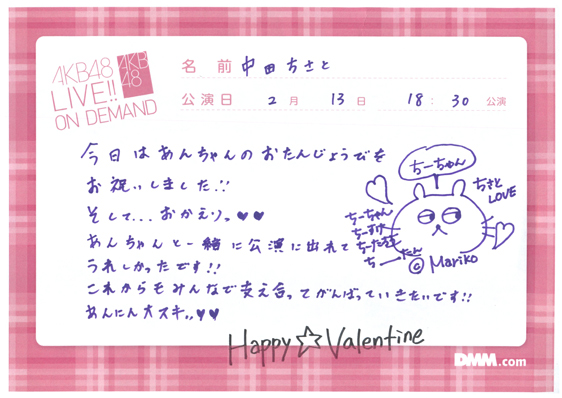 AKB48
LIVE!!
ON DEMAND
AKB
48
名 前 中田ちさと
公演日 2月 13日 18:30 公演
今日はあんちゃんのおたんじょうびを
お祝いしました!!
そして...おかえりっ♥♥
あんちゃんと一緒に公演に出れて
うれしかったです!!
これからもみんなで支え合ってがんばっていきたいです!!
あんにん大スキっ♥♥
ちーちゃん
ちさと
LOVE
ちーちゃん
ちーすけ
ちーたろう
ちーたん
© Mariko
Happy☆Valentine
DMM.com